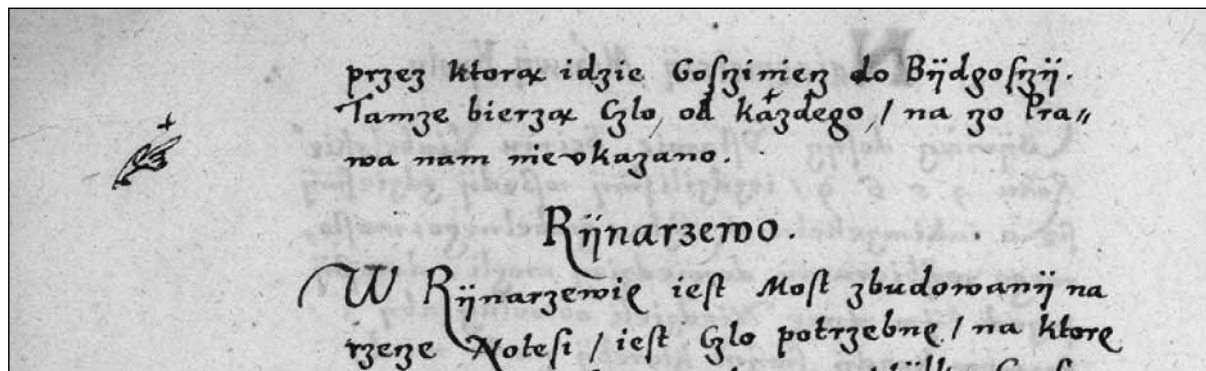 przez ktorą idzie Gosziniez do Bÿdgoszÿ.
Tamze bierzą Czlo, od kazdego, / na zo Pra„
wa nam nievkazano.
Rÿnarzewo.
W Rÿnarzewię iest Most zbudowanÿ na
rzeze Notesi / iest Czlo potrzebnę / na ktorę